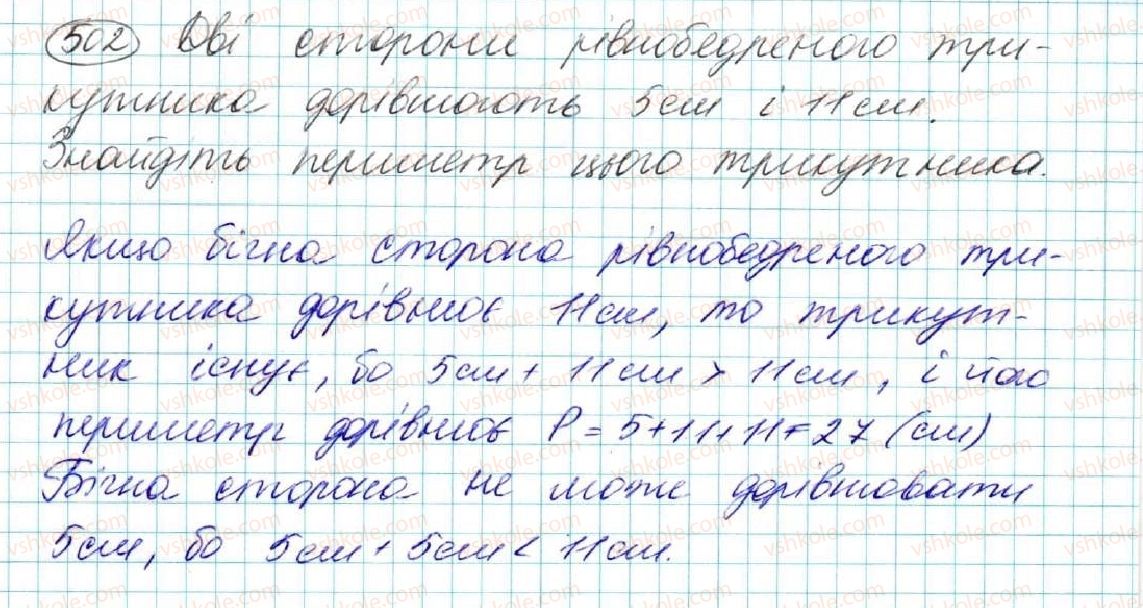 502 Дві сторони рівнобедреного три-
кутника дорівнюють 5см і 11см.
Знайдіть периметр цього трикутника.
Якщо бічна сторона рівнобедреного три-
кутника дорівнює 11см, то трикут-
ник існує, бо 5см + 11см > 11см, і його
периметр дорівнює P = 5+11+11=27 (см)
Бічна сторона не може дорівнювати
5см, бо 5см + 5см < 11см.